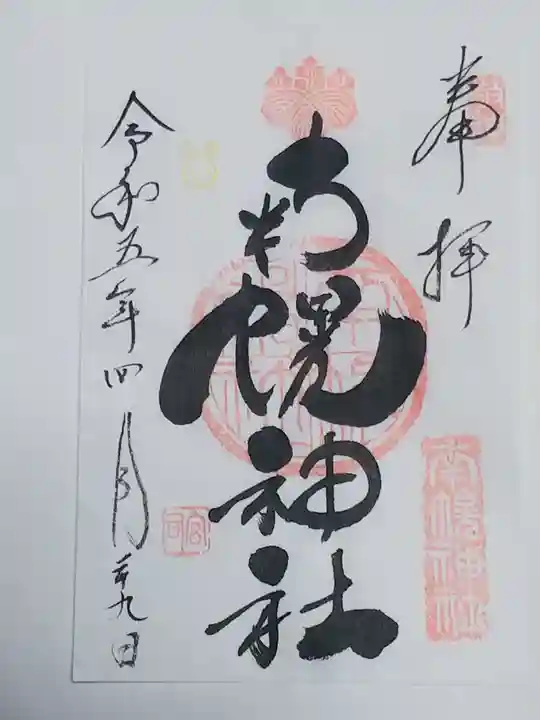 奉拝
南幌神社
南幌神社
令和五年四月廿九日
宮司